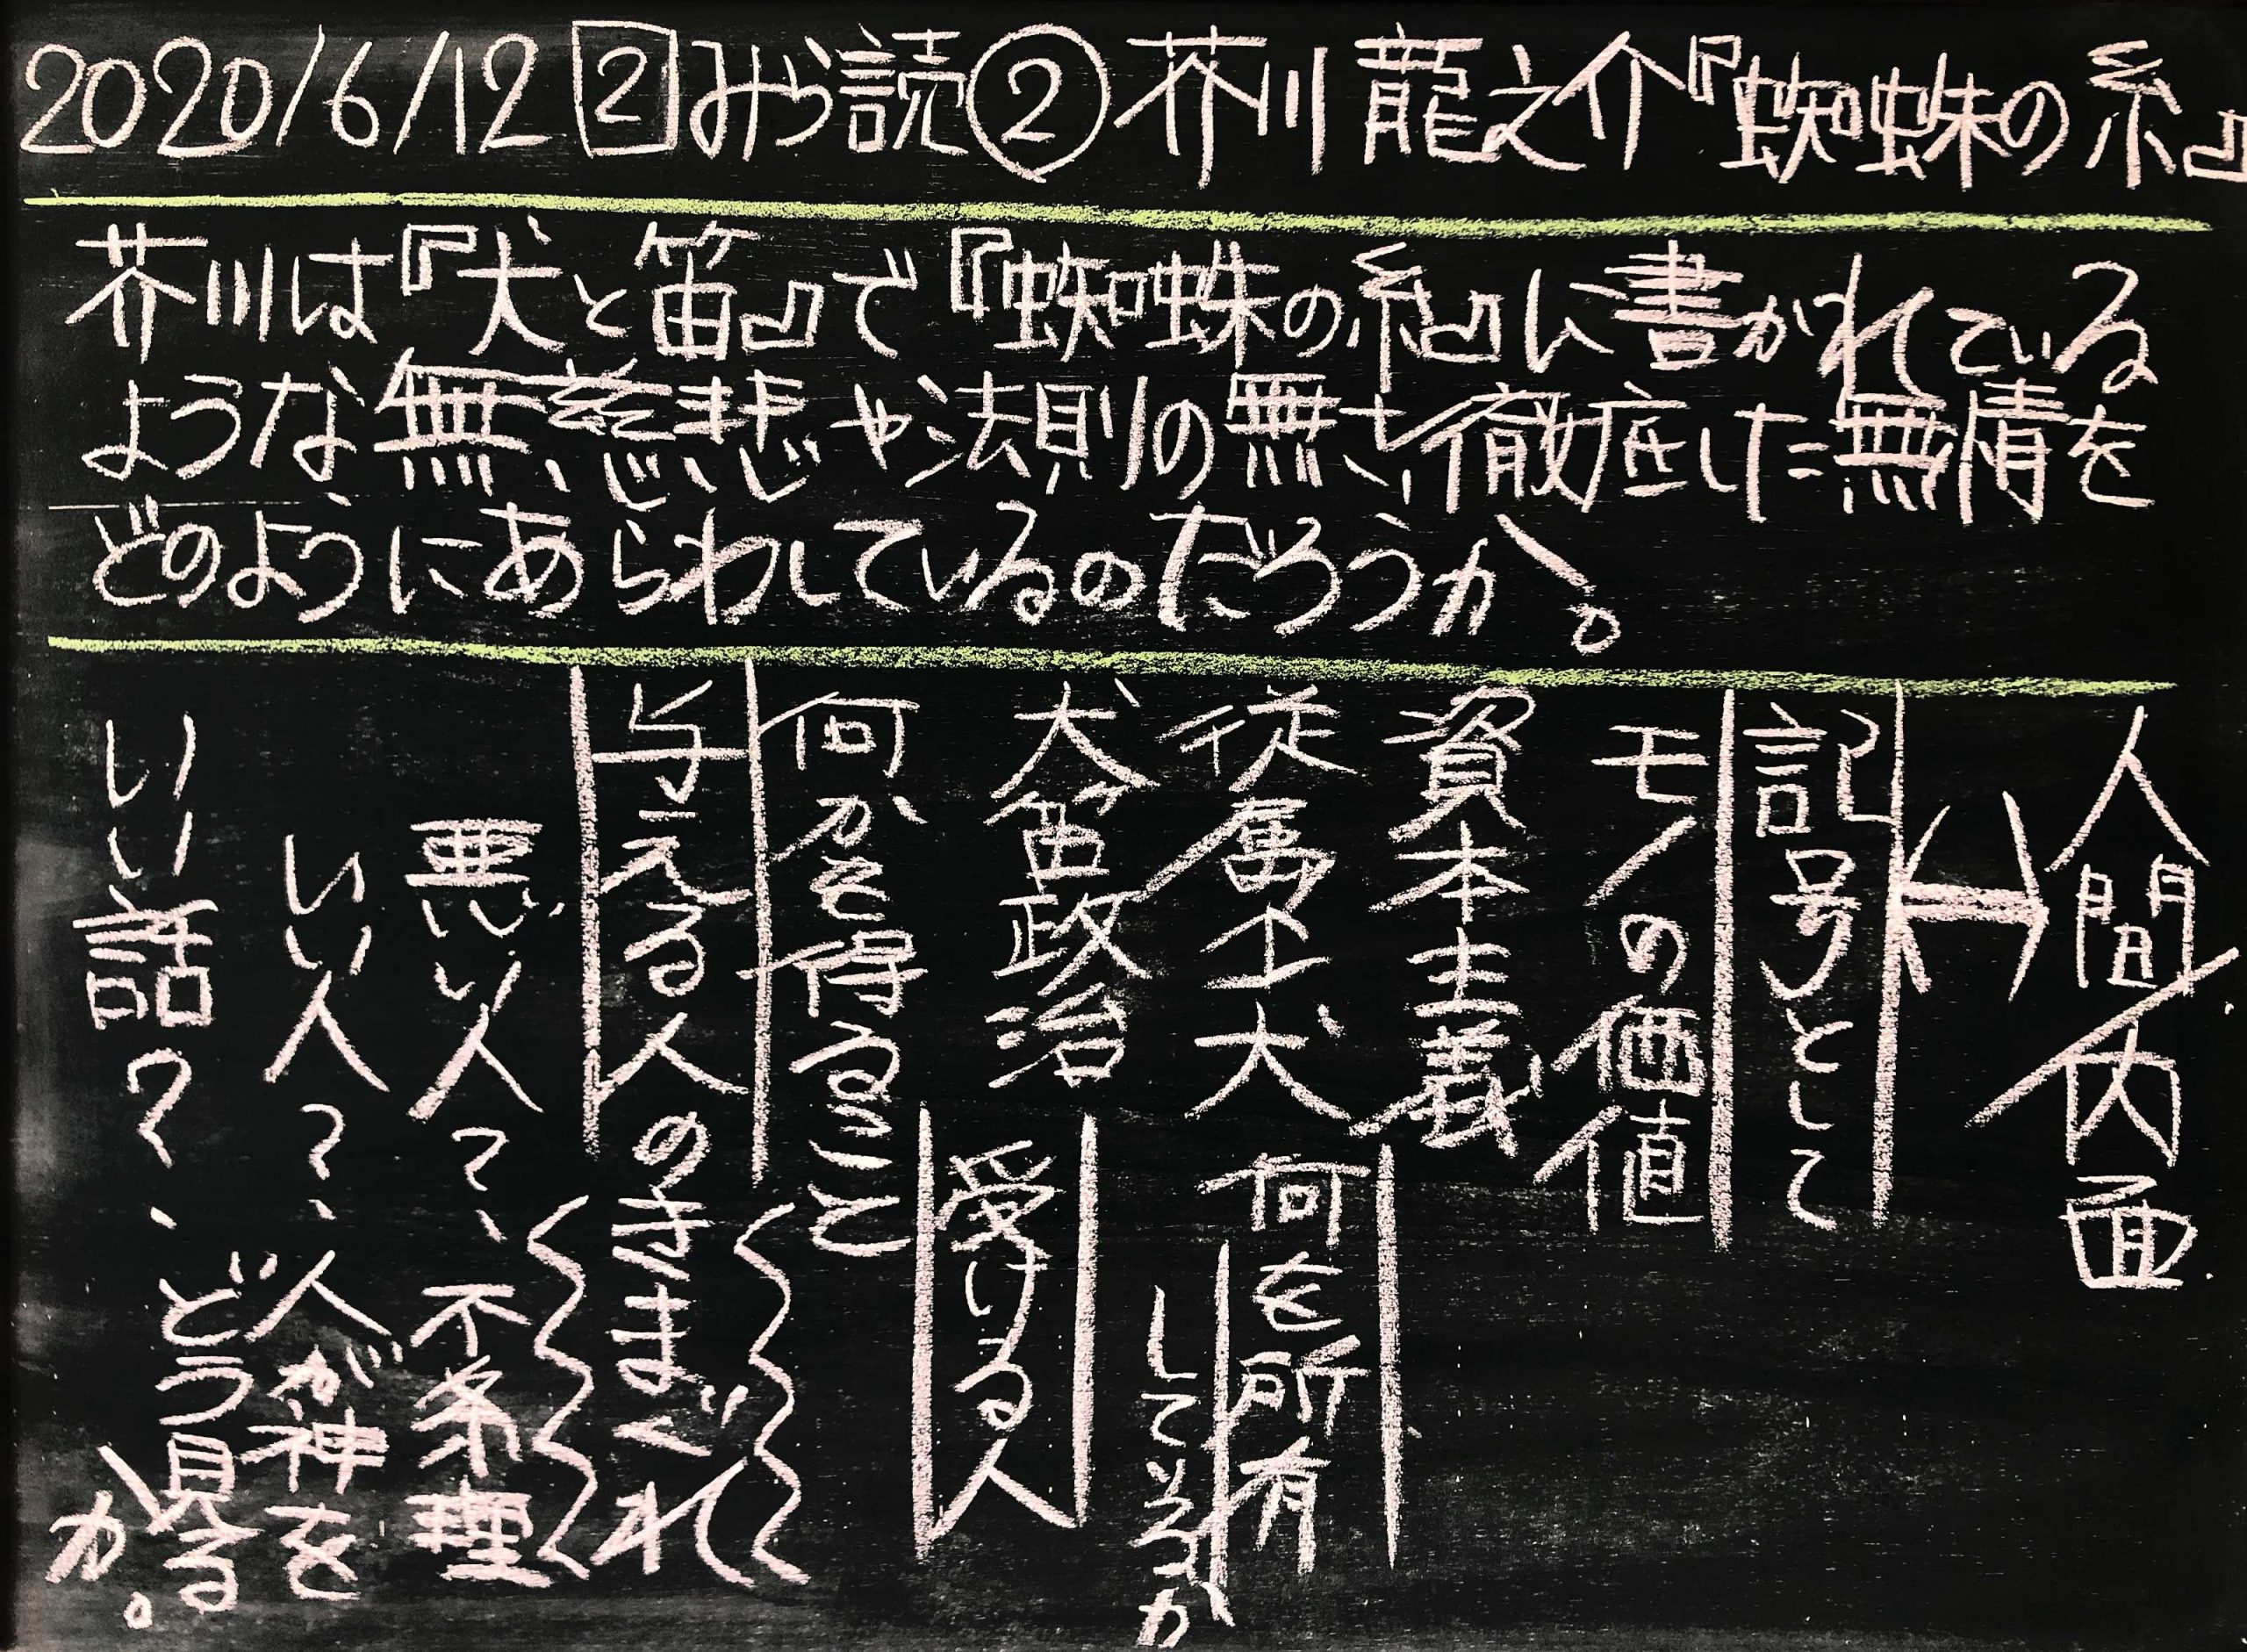 2020/6/12 2 みら読② 芥川龍之介『蜘蛛の糸』
芥川は『犬と笛』で『蜘蛛の糸』に書かれている
ような無慈悲や法則の無さ、徹底した無情を
どのようにあらわしているのだろうか。
人間/内面
↔
記号として
モノの価値
資本主義
従属 犬
何を所有
しているか
犬笛政治
受ける人
何かを得ること
与える人のきまぐれ
悪い人?、不条理
いい人?、人が神を
いい話?、どう見る
か。